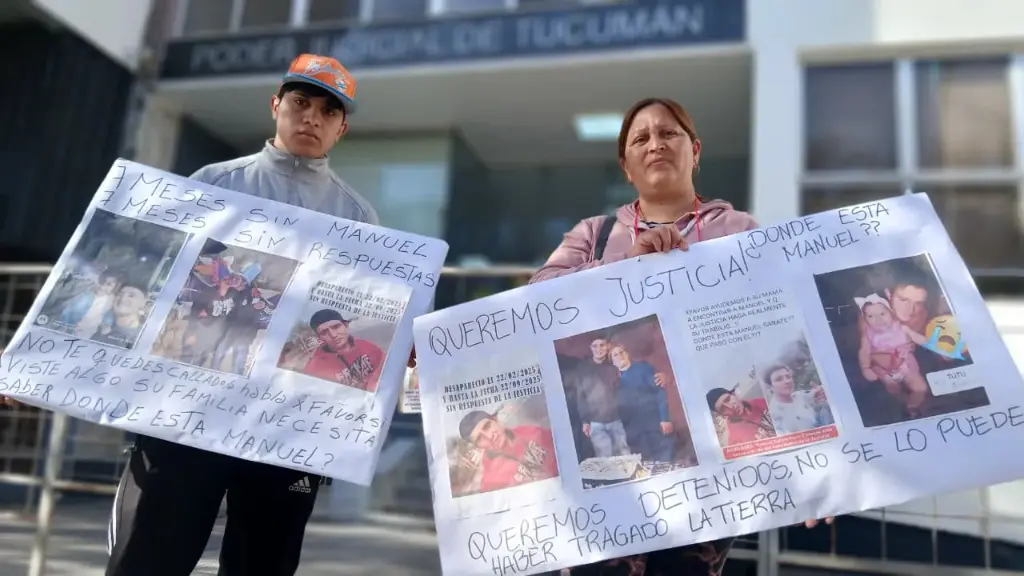 PODER JUDICIAL DE TUCUMÁN
7 MESES SIN MANUEL
7 MESES SIN RESPUESTAS
DESAPARECIO LA FECHA 22/02/2025
HASTA LA FECHA 22/09/2025
SIN RESPUESTA DE LA JUSTICIA
NO TE QUEDES CALLADO, hablo X FAVOR SI
VISTE ALGO SU FAMILIA NECESITA
SABER DONDE ESTA MANUEL?
QUEREMOS JUSTICIA!
¿DONDE ESTA
MANUEL??
DESAPARECIO LE 22/02/2025
HASTA LA FECHA 22/09/2025
SIN RESPUESTA DE LA JUSTICIA
XFAVOR AYUDEMOS A SU MAMA
A ENCONTRAR A MANUEL Y Q
LA JUSTICIA HAGA REALMENTE
SU TRABAJO..!!
DONDE ESTA MANUEL
QUE PASO CON EL???
TUTU
QUEREMOS DETENIDOS, NO SE LO PUEDE
HABER TRAGADO LA TIERRA